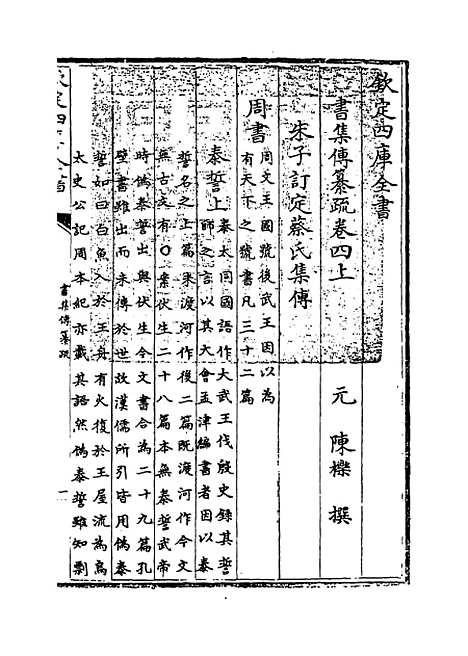 欽定四庫全書
書集傳纂疏卷四上
元 陳櫟 撰
朱子訂定蔡氏集傳
周書
周文王國號後武王因以為
有天下之號書凡三十二篇
泰誓上
泰太同國語作大武王伐殷史錄其誓
師之言以其大會孟津編書者因以泰
誓名之上篇未渡河作後二篇既渡河作今文
無古文有○案伏生二十八篇本無泰誓武帝
時偽泰誓出與伏生今文書合為二十九篇孔
壁書雖出而未傳於世故漢儒所引皆用偽泰
誓如曰白魚入於王舟有火復於王屋流為烏
太史公記周本紀亦載其語然偽泰誓雖知剽
書集傳纂疏
一